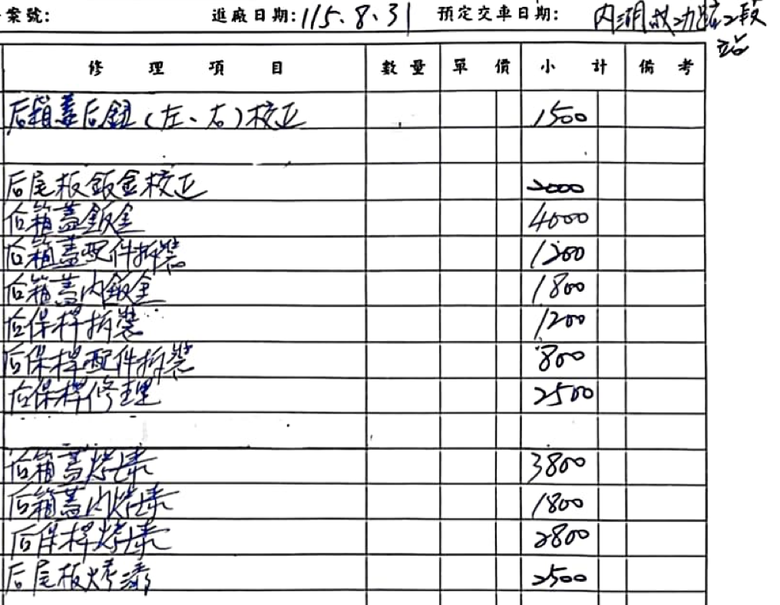 案號: 進廠日期: 115.8.31 預定交車日期: 內湖成功路二段
站
修理項目 數量 單價 小計 備考
后箱蓋后鈕(左、右)校正 1500
后尾板鈑金校正 2000
后箱蓋鈑金 4000
后箱蓋配件拆裝 1200
后箱蓋內鈑金 1800
后保桿拆裝 1200
后保桿配件拆裝 800
后保桿修理 2500
后箱蓋烤漆 3800
后箱蓋內烤漆 1800
后保桿烤漆 2800
后尾板烤漆 2500